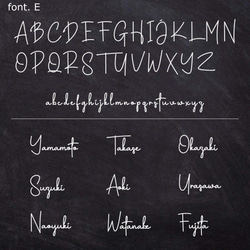 font. E
ABCDEFGHIJKLMN
OPQRSTUVWXYZ
abcdefghijklmnopqrstuvwxyz
Yamamoto Takase Okazaki
Suzuki Aoki Urasawa
Naoyuki Watanabe Fujita